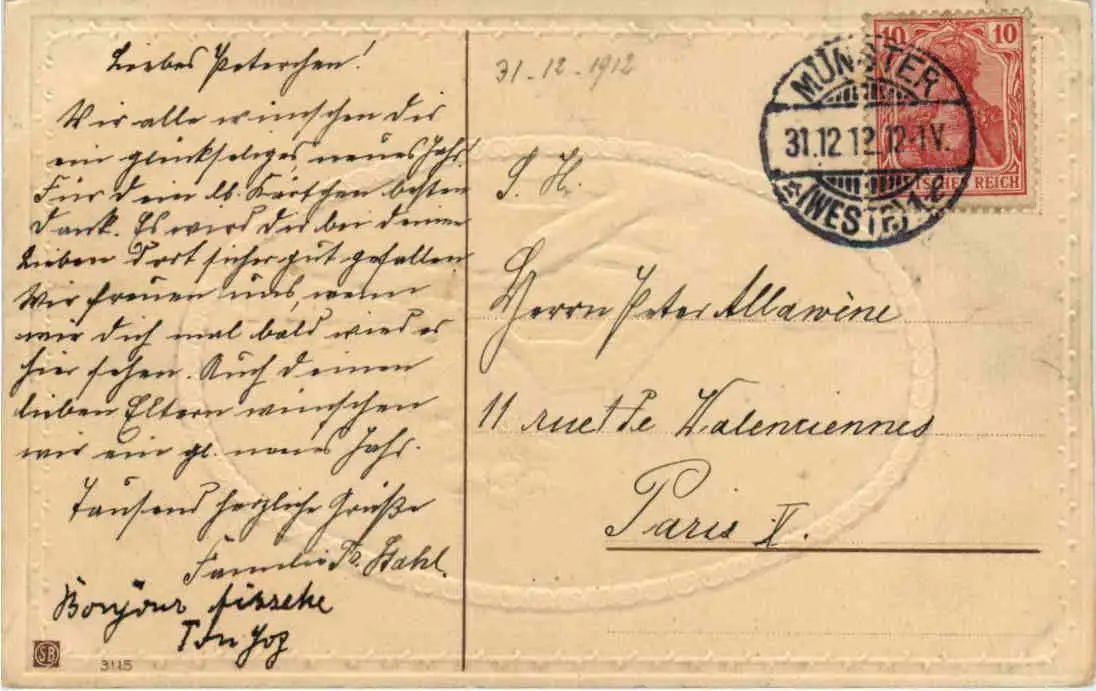 Liebes Peterchen!
Wir alle wünschen dir
ein glückseliges neues Jahr.
Für dein lb. Kärtchen besten
Dank. Es wird dir bei deinen
Lieben dort sicher gut gefallen
Wir freuen uns, wenn
wir dich mal bald wieder
hier sehen. Auch deinen
lieben Eltern wünschen
wir ein gl. neues Jahr.
Tausend herzliche Grüße
Familie Fr. Stahl.
Bonjour
31-12-1912
S. H.
Herrn Peter Allawène
11 rue de Valenciennes
Paris X.
10 10
DEUTSCHES REICH
MÜNSTER
31.12.12.12-1V.
(WESTF.)
SB
3115